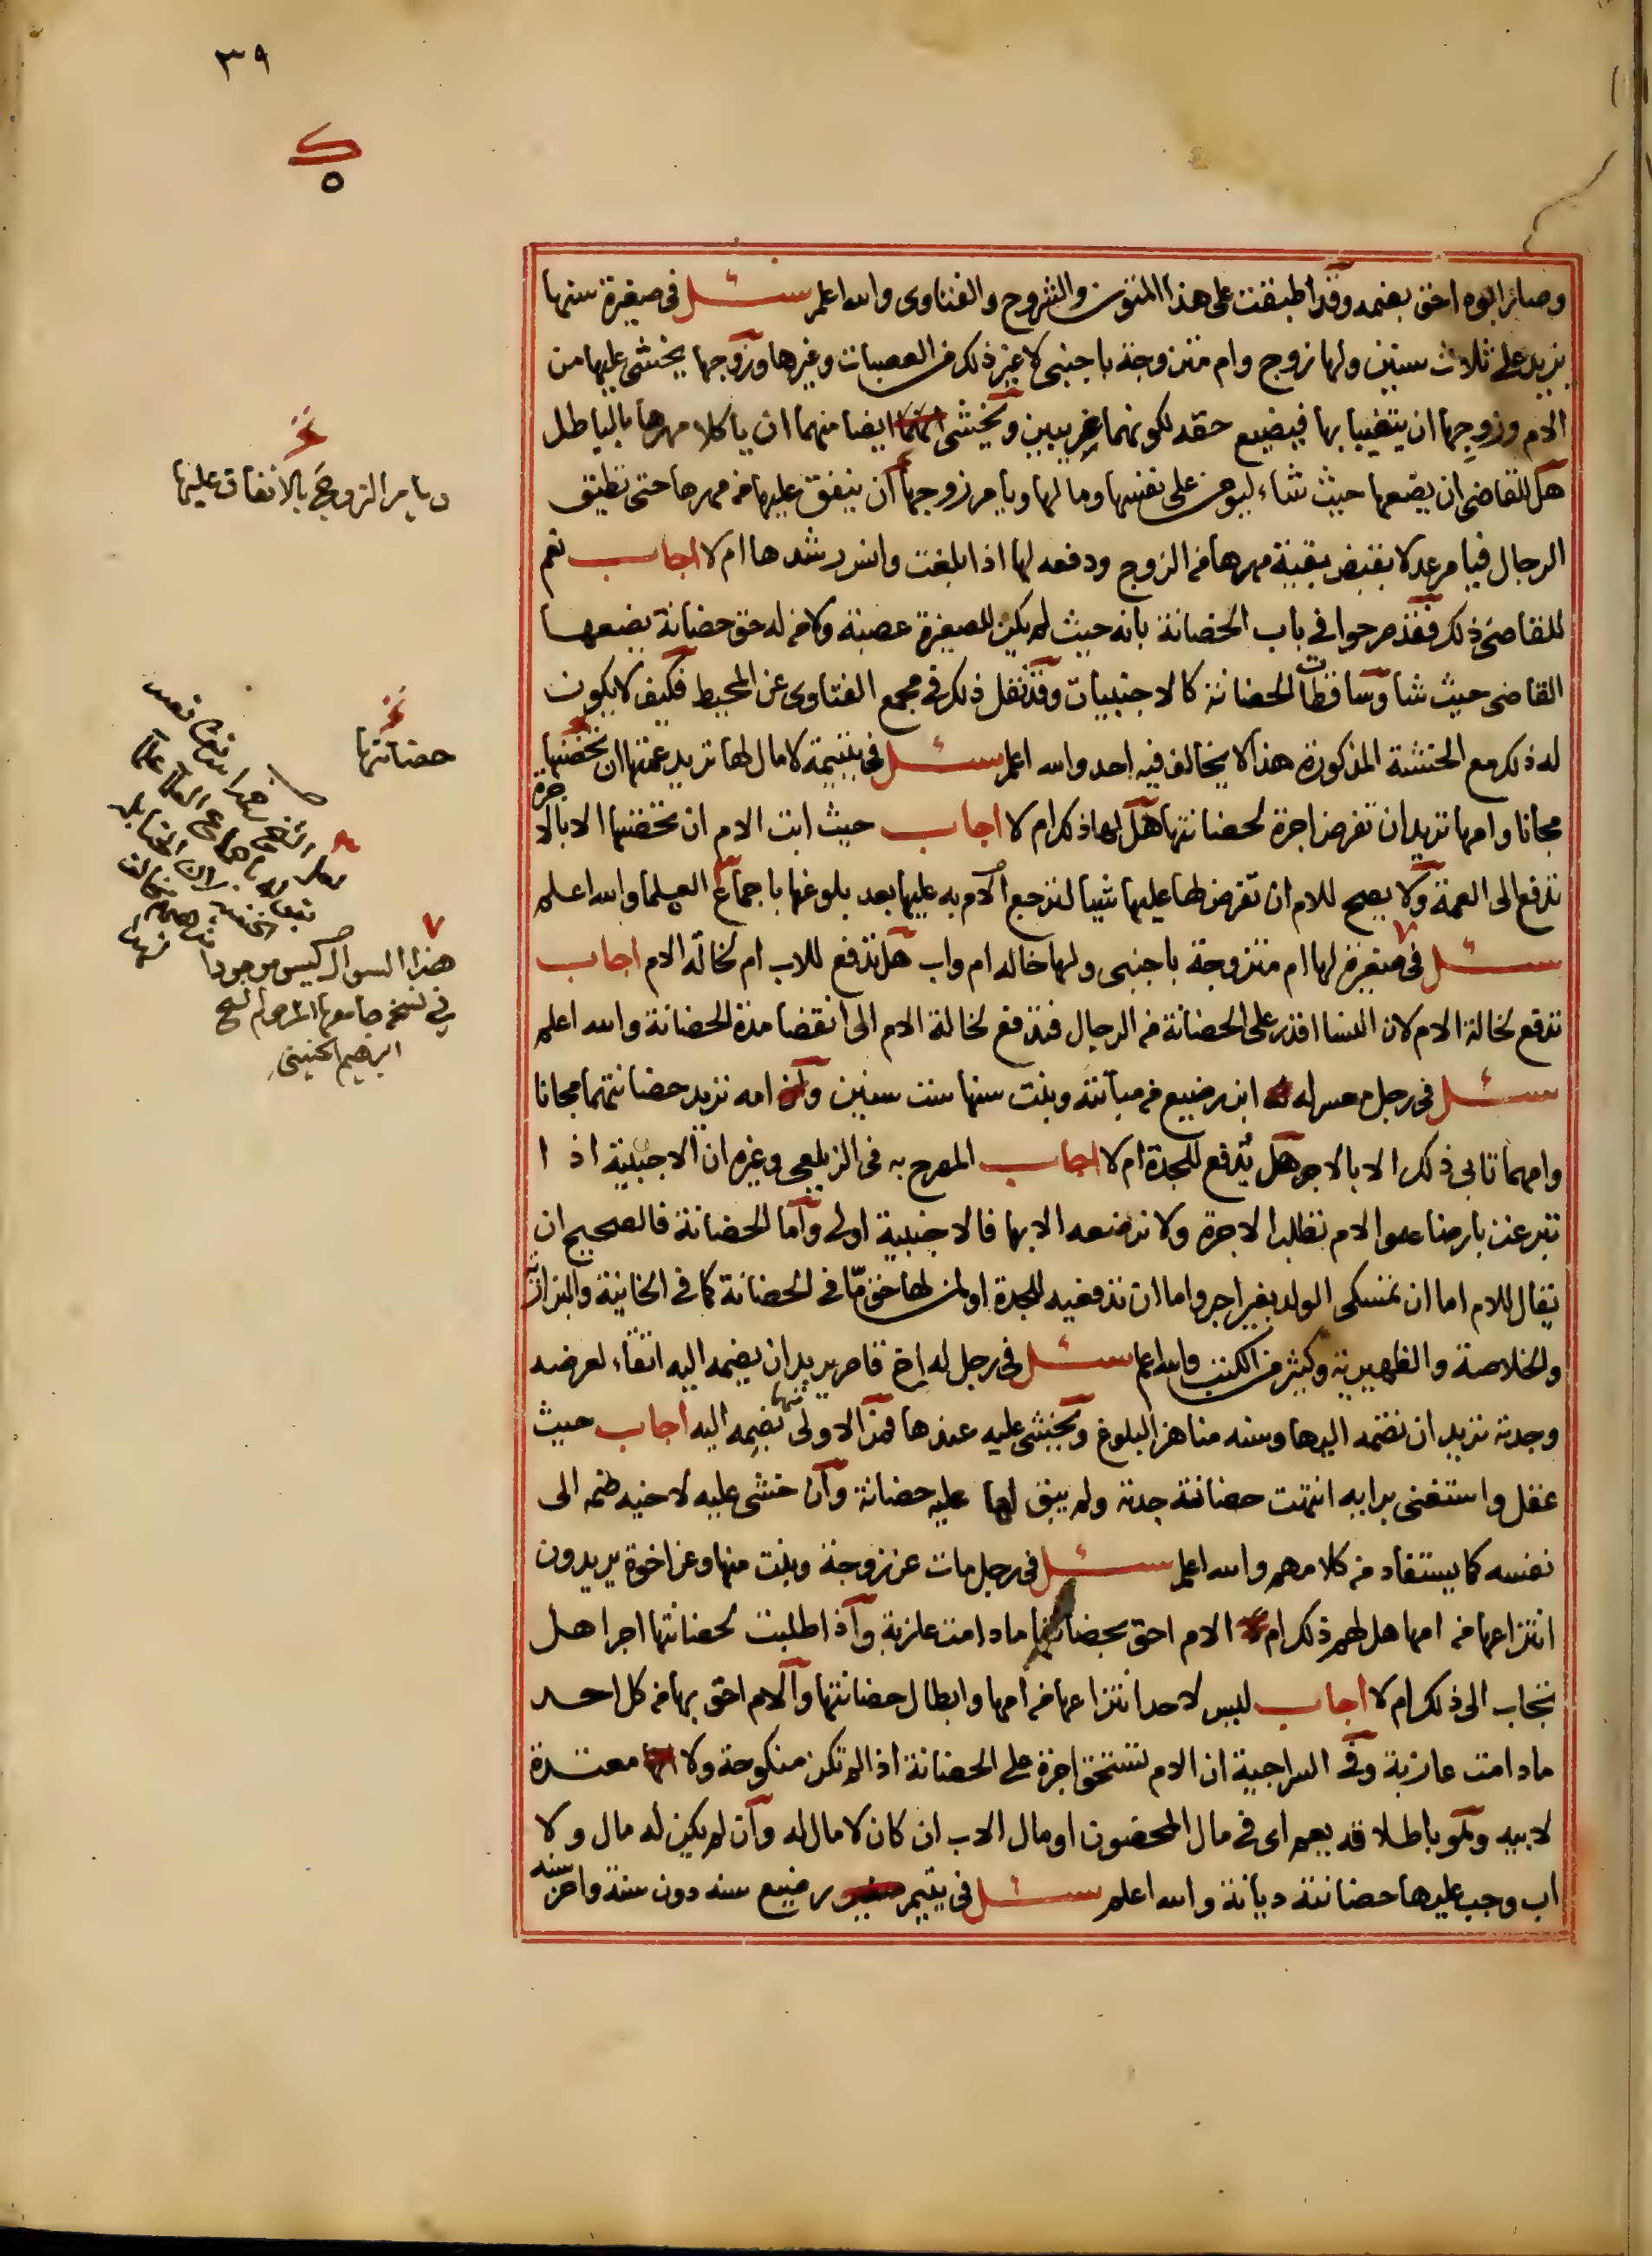 ٣٩
وصار ابوه احق بضمه وقد اطبقت على هذا المتون والشروح والفتاوى والله اعلم سئل في صغيرة سنها
يزيد على ثلاث سنين ولها زوج وام متزوجة باجنبي لا غير ذلك من العصبات وغيرها وزوجها يخشى عليها من
الام وزوجها ان يتغيبا بها فيضيع حقه لكونهما غريبين ويخشى ايضا منهما ان ياكلا مهرها بالباطل
هل للقاضي ان يضعها حيث شاء ليومن على نفسها ومالها ويامر زوجها ان ينفق عليها من مهرها حتى تطيق
الرجال فيامر عدلا بقبض بقية مهرها من الزوج ودفعه لها اذا بلغت وانس رشدها ام لا اجاب نعم
للقاضي ذلك فقد صرحوا في باب الحضانة بانه حيث لم يكن للصغيرة عصبة ولا من له حق حضانة يضعها
القاضي حيث شا وساقطات الحضانة كالاجنبيات وقد نقل ذلك في مجمع الفتاوى عن المحيط فكيف لا يكون
له ذلك مع الخشية المذكورة هذا لا يخالف فيه احد والله اعلم سئل في يتيمة لا مال لها تريد عمتها ان تحضنها
مجانا وامها تريد ان تفرض اجرة لحضانتها هل لها ذلك ام لا اجاب حيث ابت الام ان تحضنها الا بالاجرة
تدفع الى العمة ولا يصح للام ان تفرض لها عليها شيا لترجع الام به عليها بعد بلوغها باجماع العلما والله اعلم
سئل في صغيرة لها ام متزوجة باجنبي ولها خاله ام واب هل تدفع للاب ام لخالة الام اجاب
تدفع لخالة الام لان النسا اقدر على الحضانة من الرجال فتدفع لخالة الام الى انقضا مدة الحضانة والله اعلم
سئل في رجل معسر له ابن رضيع من مبانته وبنت سنها ست سنين وامه تريد حضانتهما مجانا
وامهما تابى ذلك الا بالاجر هل تدفع للجدة ام لا اجاب المصرح به في الزيلعي وغيره ان الاجنبية اذا
تبرعت بارضاعه والام تطلب الاجرة ولا ترضعه الا بها فالاجنبية اولى واما الحضانة فالصحيح ان
يقال للام اما ان تمسكي الولد بغير اجر واما ان تدفعيه للجدة او لمن لها حق ما في الحضانة كما في الخانية والبزازية
والخلاصة والظهيرية وكثير من الكتب والله اعلم سئل في رجل له اخ قاصر يريد ان يضمه اليه اتقاء لعرضه
وجدته تريد ان تضمه اليها وسنه مناهز البلوغ ويخشى عليه عندها فمن الاولى منهما بضمه اليه اجاب حيث
عقل واستغنى برايه انتهت حضانة جدته ولم يبق لها عليه حضانة وان خشي عليه لاخيه ضمه الى
نفسه كما يستفاد من كلامهم والله اعلم سئل في رجل مات عن زوجة وبنت منها وعن اخوة يريدون
انتزاعها من امها هل لهم ذلك ام الام احق بحضانتها ما دامت عازبة واذا طلبت لحضانتها اجرا هل
تجاب الى ذلك ام لا اجاب ليس لاحد انتزاعها من امها وابطال حضانتها والام احق بها من كل احد
ما دامت عازبة وفي السراجية ان الام تستحق اجرة على الحضانة اذا لم تكن منكوحة ولا معتدة
لابيه وهو باطلاقه يعم اى في مال المحضون او مال الاب ان كان لا مال له وان لم يكن له مال ولا
اب وجب عليها حضانته ديانة والله اعلم سئل في يتيم رضيع سنه دون سنة واخر سنه
ويامر الزوج بالانفاق عليها
حضانتها
٧
هذا السوال ليس موجودا
في نسخة جامعها المرحوم الشيخ
ابرهيم الجنيني